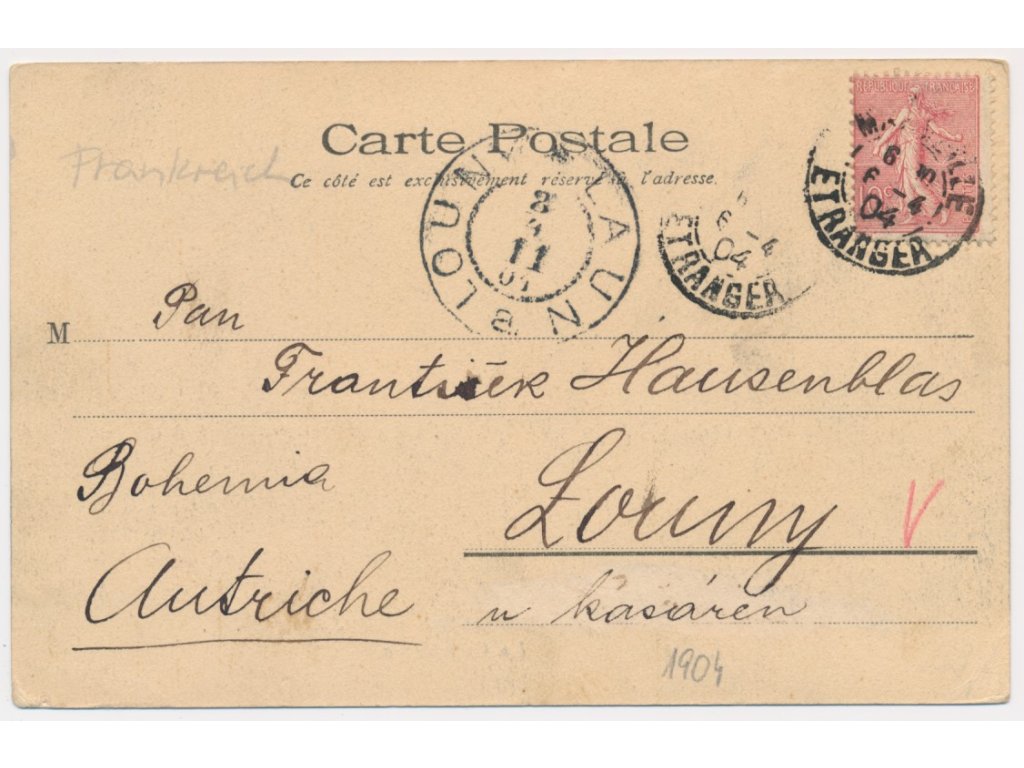 RÉPUBLIQUE FRANÇAISE
10c
6
6 - 4
04
ETRANGER
Carte Postale
Ce côté est exclusivement réservé à l'adresse.
Frankreich
LOUNY * LAUN a
11
04
6 - 4
04
ETRANGER
M Pan
František Hausenblas
Bohemia
Louny
V
Autriche
u kasáren
1904